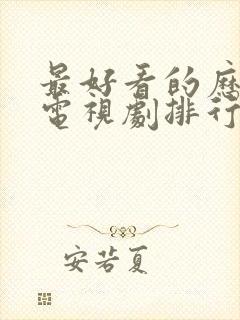 最好看的歷
電視劇排行
安若夏